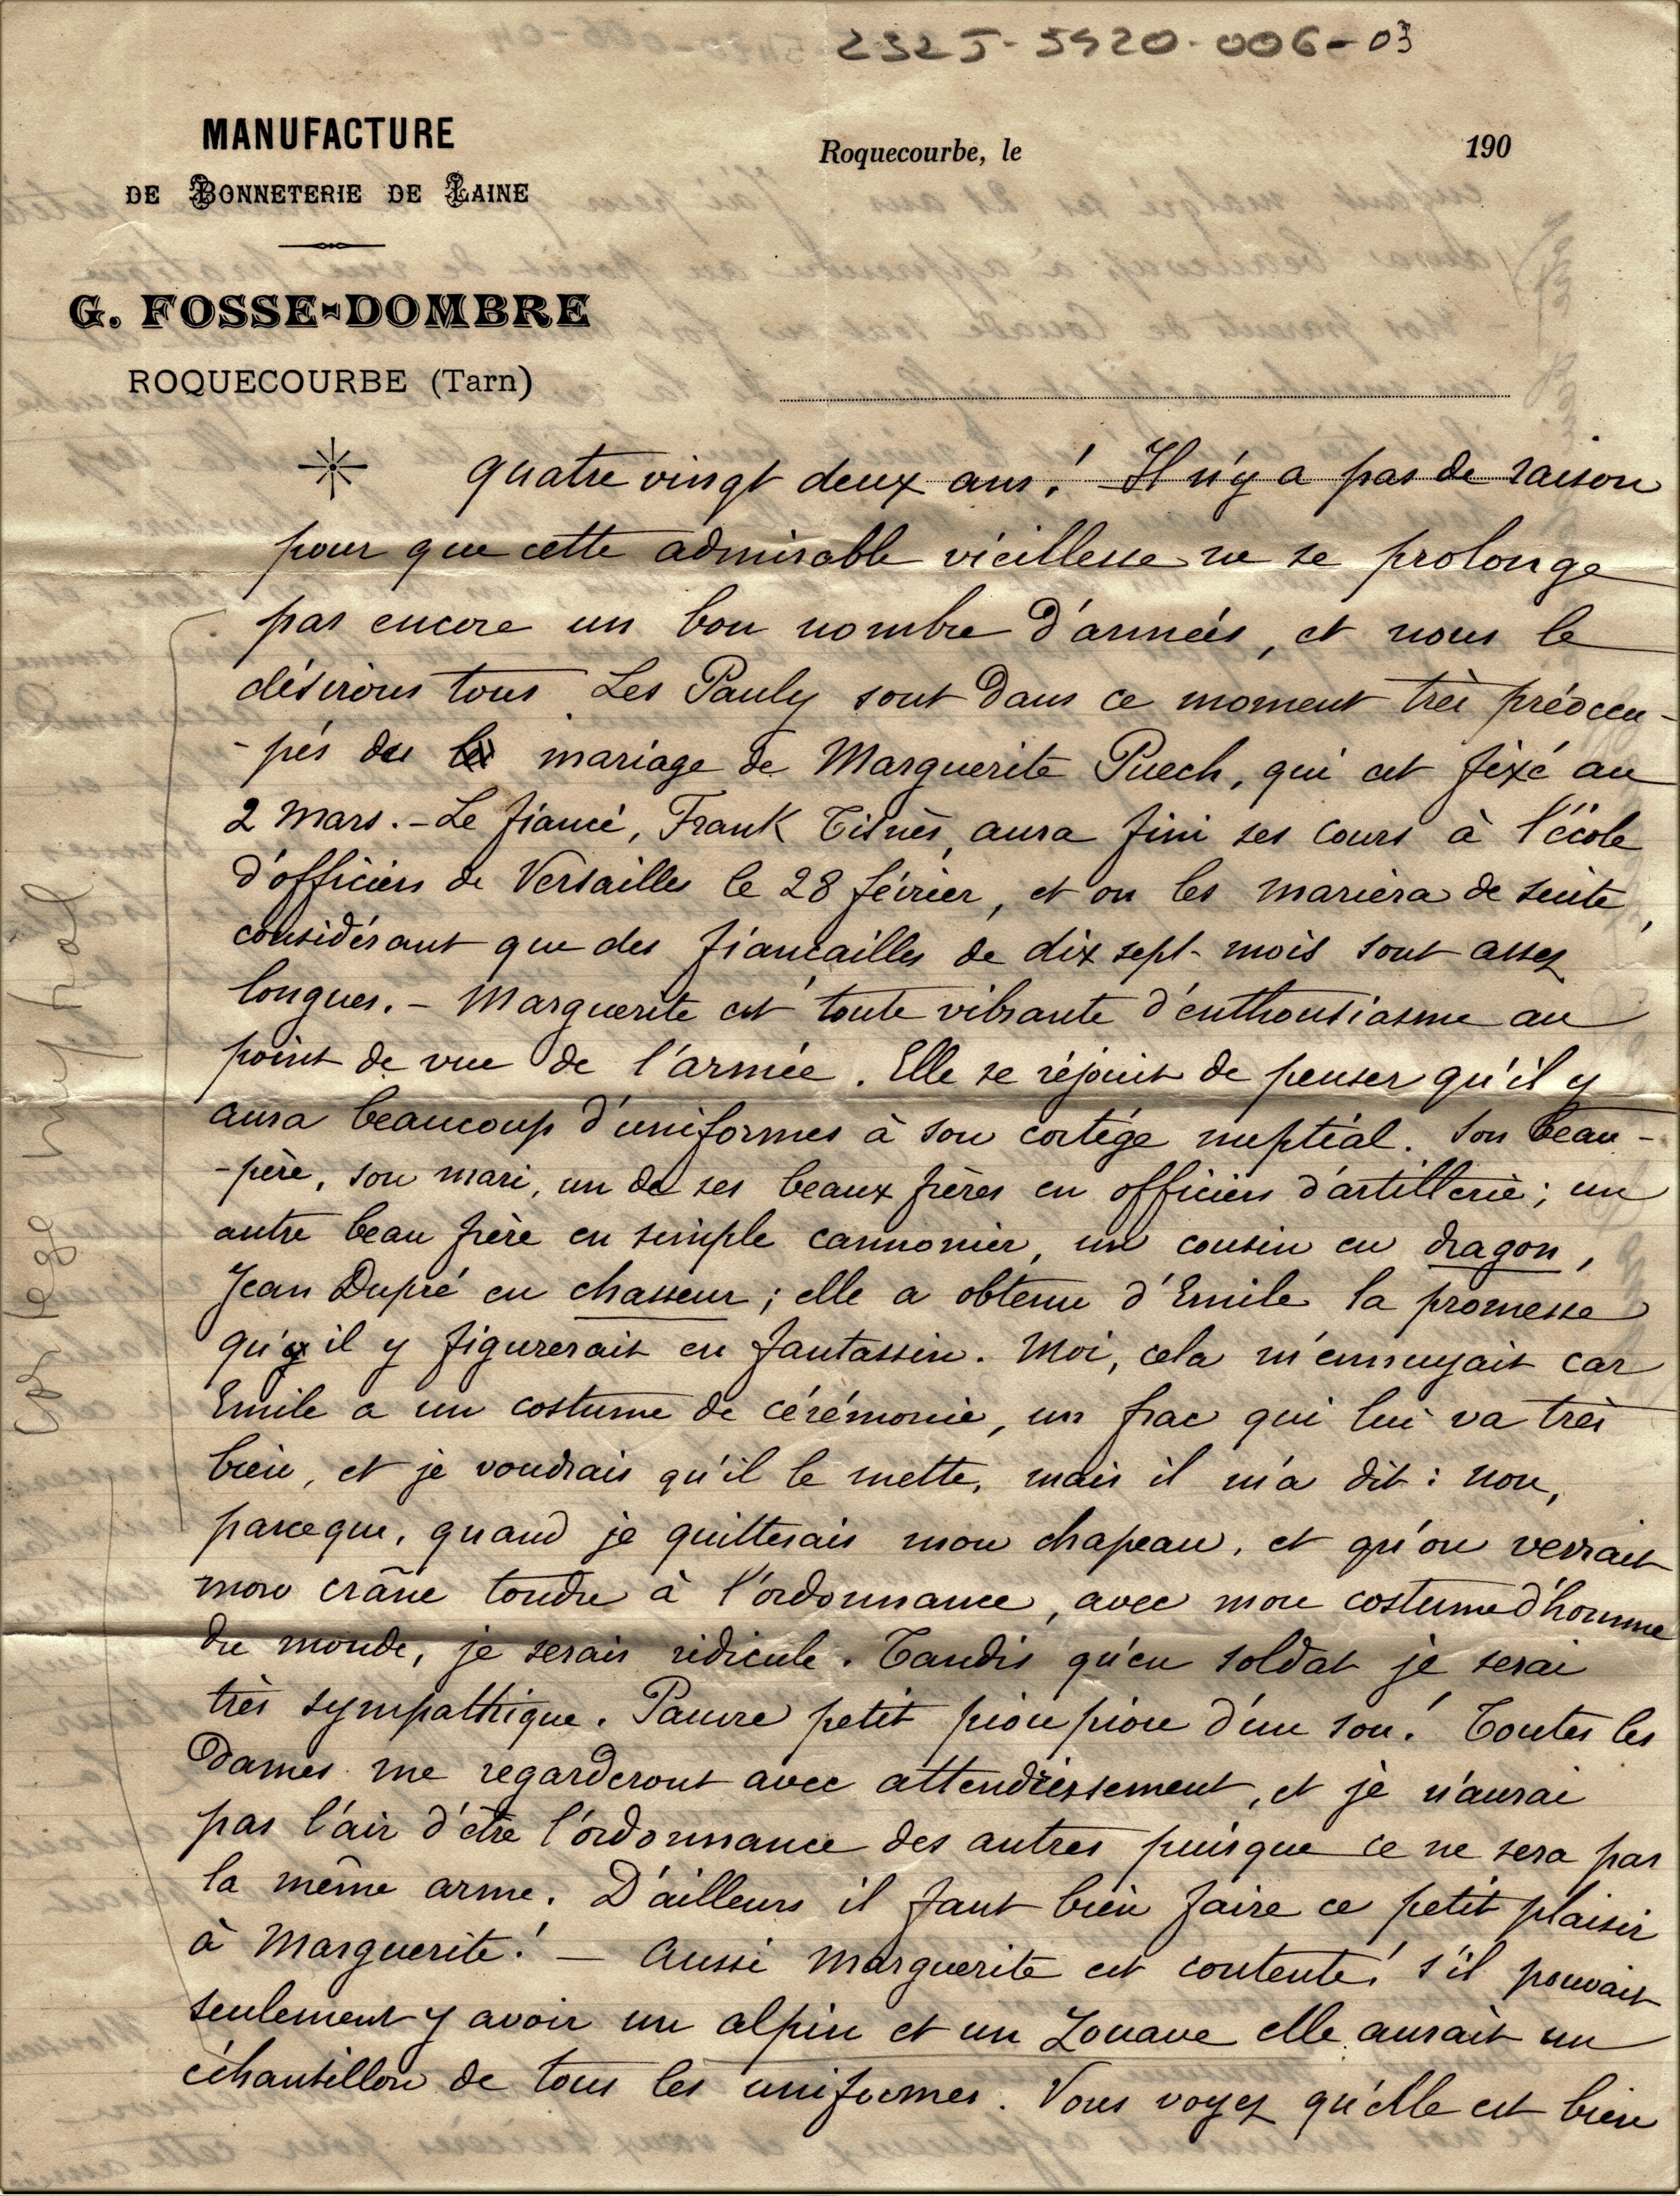 232J-5920-006-03
MANUFACTURE
DE BONNETERIE DE LAINE
G. FOSSE-DOMBRE
ROQUECOURBE (Tarn)
Roquecourbe, le 190
quatre vingt deux ans! Il n'y a pas de raison
pour que cette admirable vieillesse ne se prolonge
pas encore un bon nombre d'années, et nous le
désirons tous. Les Pauly sont dans ce moment très préoccu-
-pés du mariage de Marguerite Puech, qui est fixé au
2 Mars. - Le fiancé, Frank Tisnès, aura fini ses cours à l'école
d'officiers de Versailles le 28 février, et on les mariera de suite,
considérant que des fiançailles de dix sept-mois sont assez
longues. - Marguerite est toute vibrante d'enthousiasme au
point de vue de l'armée. Elle se réjouit de penser qu'il y
aura beaucoup d'uniformes à son cortége nuptial. Son beau-
-père, son mari, un de ses beaux frères en officiers d'artillerie; un
autre beau frère en simple cannonier, un cousin en dragon,
Jean Dupré en chasseur; elle a obtenu d'Emile la promesse
qu'il y figurerait en fantassin. Moi, cela m'ennuyait car
Emile a un costume de cérémonie, un frac qui lui va très
bien, et je voudrais qu'il le mette, mais il m'a dit: non,
parceque, quand je quitterais mon chapeau, et qu'on verrait
mon crâne tondu à l'ordonnance, avec mon costume d'homme
du monde, je serais ridicule. Tandis qu'en soldat je serai
très sympathique. Pauvre petit pioupiou d'un sou! Toutes les
Dames me regarderont avec attendrissement, et je n'aurai
pas l'air d'être l'ordonnance des autres puisque ce ne sera pas
la même arme. D'ailleurs il faut bien faire ce petit plaisir
à Marguerite! - Aussi Marguerite est contente! s'il pouvait
seulement y avoir un alpin et un Zouave elle aurait un
échantillon de tous les uniformes. Vous voyez qu'elle est bien